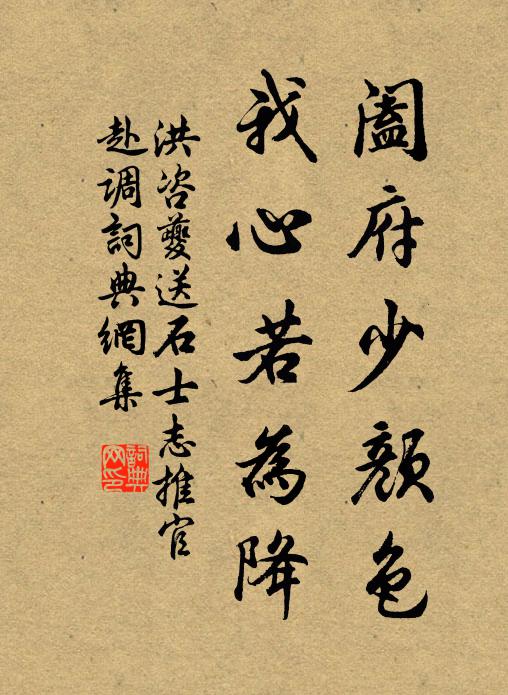 阖府少顏色
我心若為降
洪咨夔送石士志推官
赴调詞典網集
詞典网印